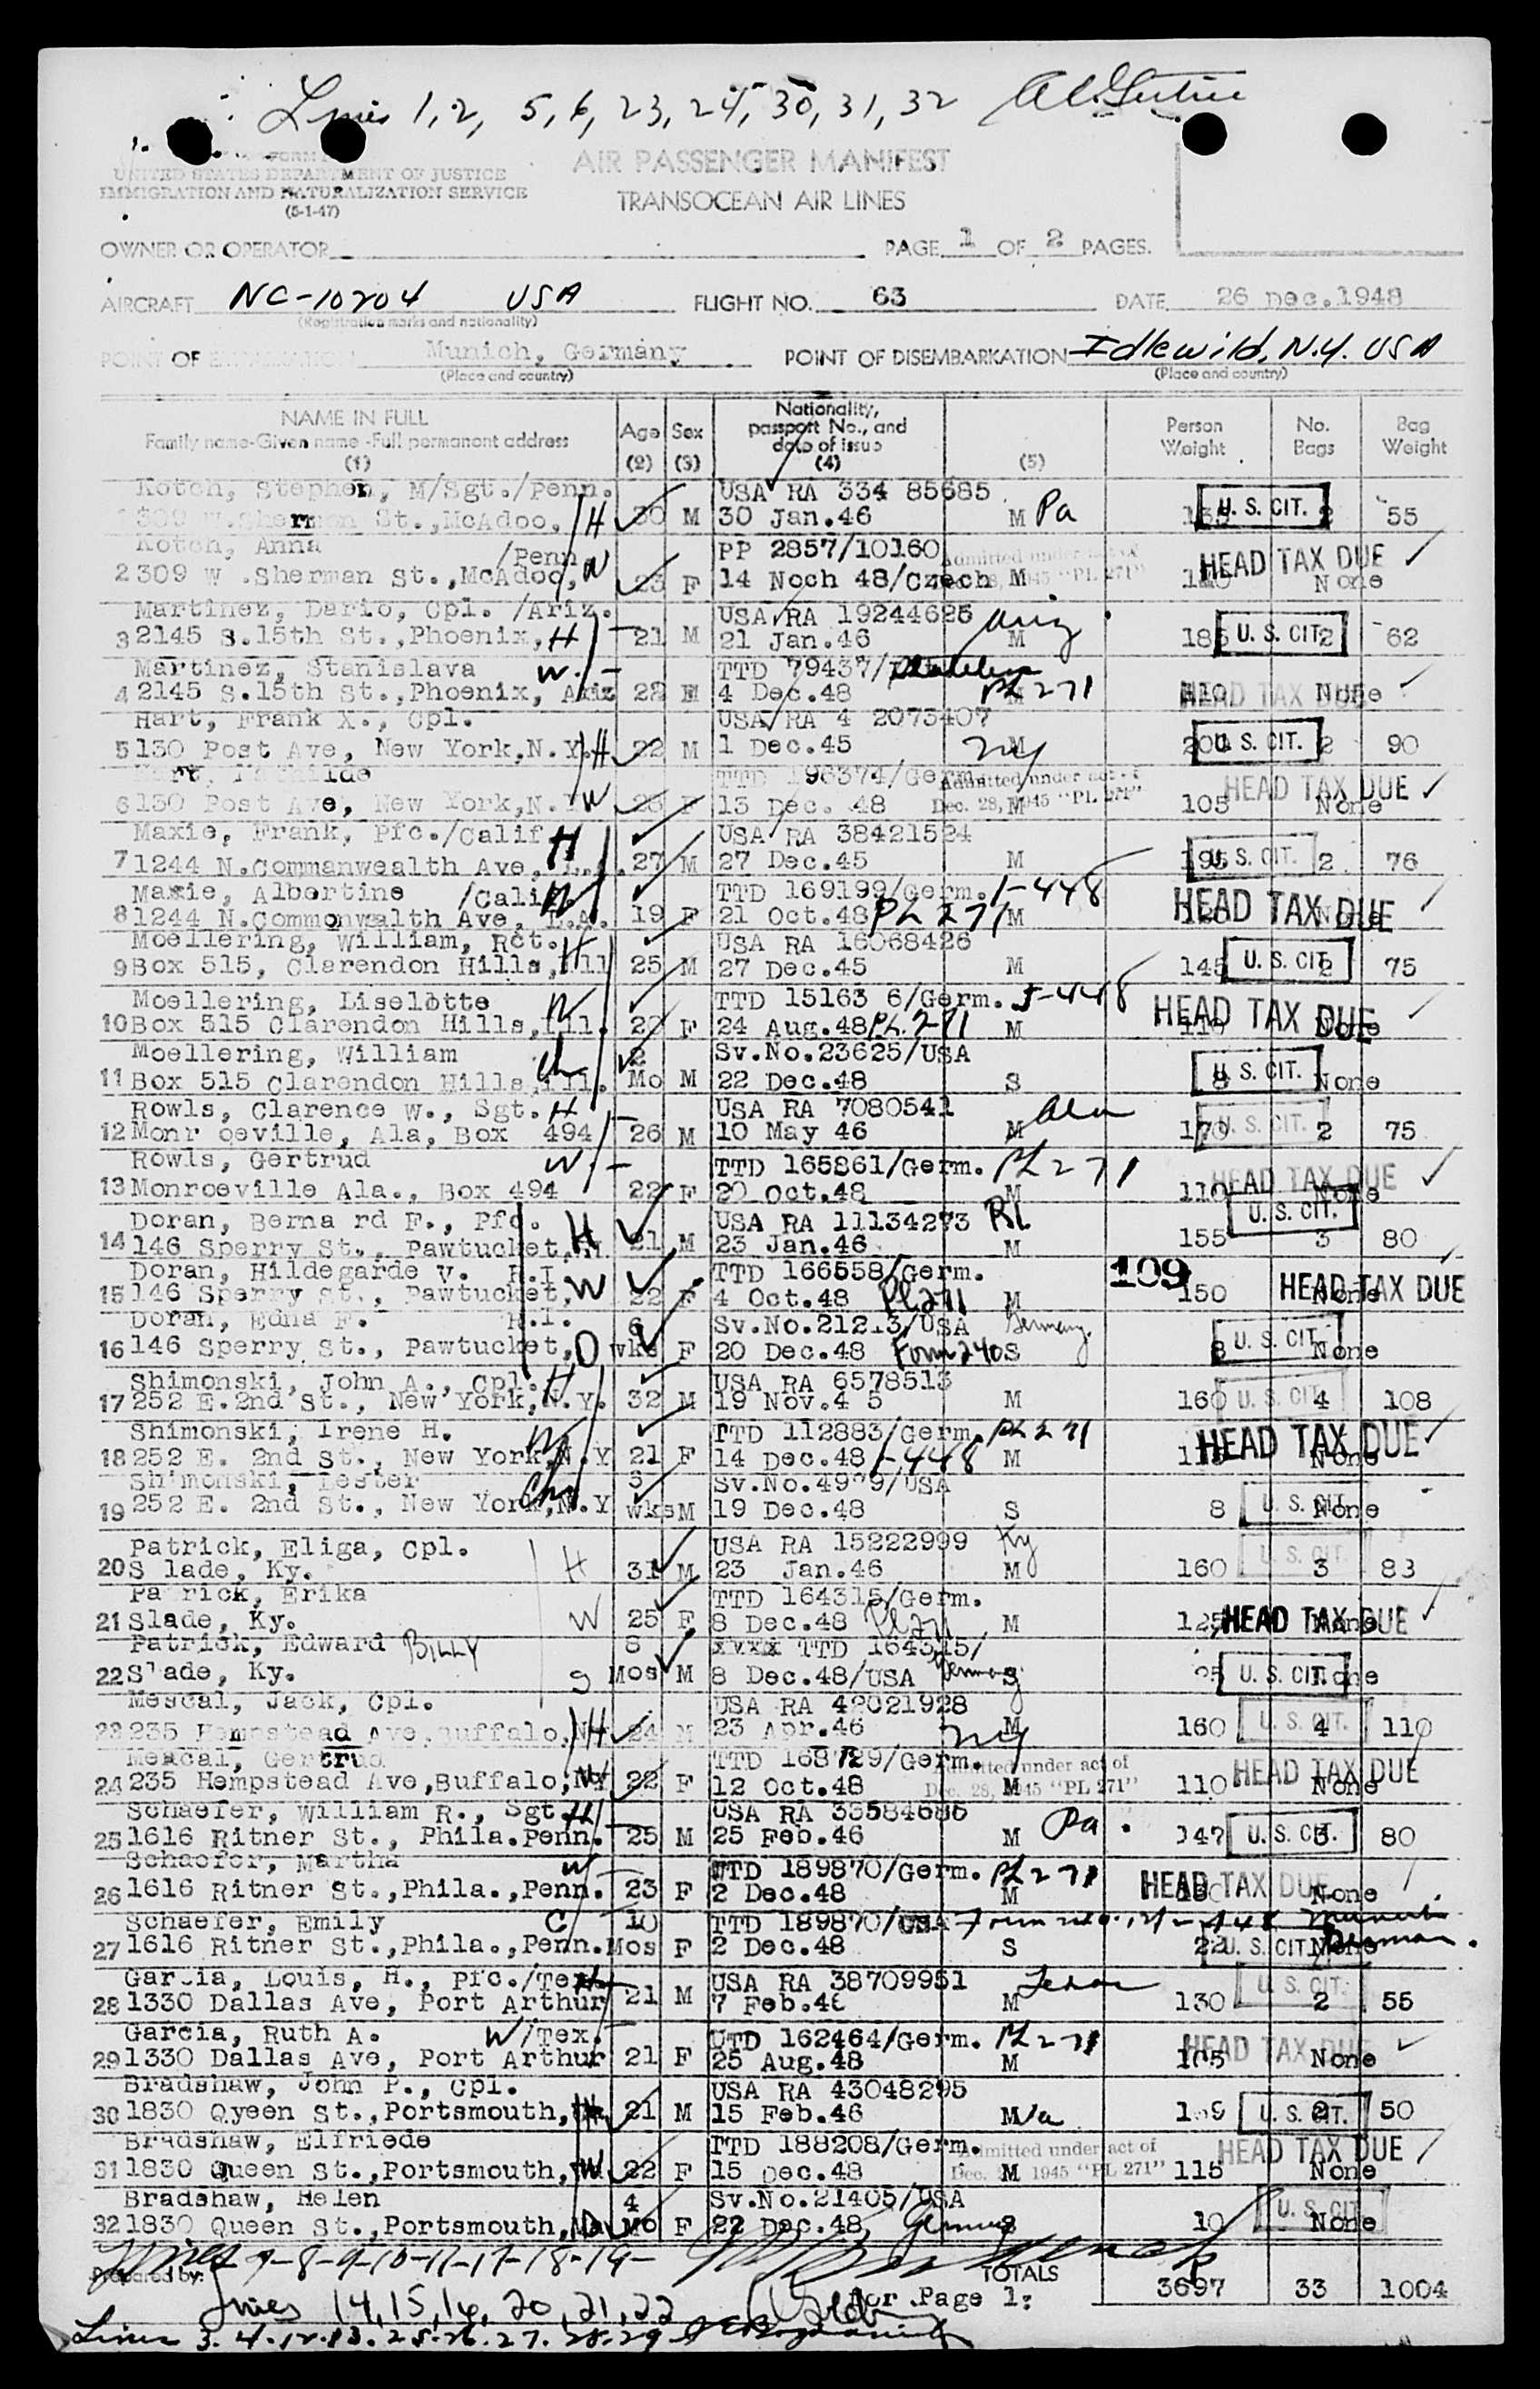 Lines 1, 2, 5, 6, 23, 24, 30, 31, 32
FORM
UNITED STATES DEPARTMENT OF JUSTICE
IMMIGRATION AND NATURALIZATION SERVICE
(5-1-47)
AIR PASSENGER MANIFEST
TRANSOCEAN AIR LINES
OWNER OR OPERATOR PAGE 1 OF 2 PAGES.
AIRCRAFT NC-10204 USA FLIGHT NO. 63 DATE 26 Dec.1948
(Registration marks and nationality)
POINT OF Munich, Germany POINT OF DISEMBARKATION Idlewild, N.Y. USA
(Place and country) (Place and country)
NAME IN FULL Age Sex Nationality, passport No., and date of issue Person Weight No. Bags Bag Weight
Family name-Given name -Full permanent address
(1) (2) (3) (4) (5)
Kotch, Stephen, M/Sgt./Penn. USA RA 334 85685
309 W.Sherman St.,McAdoo, H 30 M 30 Jan.46 M Pa U. S. CIT. 2 55
Kotch, Anna /Penn PP 2857/10160 Admitted under act of
2 309 W .Sherman St.,McAdoo, W 23 F 14 Noch 48/Czech M Dec. 28, 1945 "PL 271" HEAD TAX DUE None
Martinez, Dario, Cpl. /Ariz. USA RA 19244625
3 2145 S.15th St.,Phoenix, H 21 M 21 Jan.46 M Ariz 185 U. S. CIT. 2 62
Martinez, Stanislava W TTD 79437/
4 2145 S.15th St.,Phoenix, Ariz 28 F 4 Dec.48 M PL 271 110 HEAD TAX DUE None
Hart, Frank X., Cpl. USA RA 4 2073407
5 130 Post Ave, New York,N.Y. H 22 M 1 Dec.45 M NY 200 U. S. CIT. 2 90
Hart, Mathilde TTD 196374/Germ. Admitted under act of
6 130 Post Ave, New York,N.Y W 23 F 13 Dec. 48 M Dec. 28, 1945 "PL 271" 105 HEAD TAX DUE None
Maxie, Frank, Pfc./Calif H USA RA 38421524
7 1244 N.Commanwealth Ave, L.A. 27 M 27 Dec.45 M 195 U. S. CIT. 2 76
Maxie, Albertine /Calif W TTD 169199/Germ. I-448
8 1244 N.Commonwealth Ave, L.A. 19 F 21 Oct.48 PL 271 M HEAD TAX DUE None
Moellering, William, Rct. H USA RA 16068426
9 Box 515, Clarendon Hills,Ill 25 M 27 Dec.45 M 145 U. S. CIT. 2 75
Moellering, Liselotte W TTD 15163 6/Germ. I-448
10 Box 515 Clarendon Hills,Ill. 22 F 24 Aug.48 PL 271 M 110 HEAD TAX DUE None
Moellering, William Ch 2 Sv.No.23625/USA
11 Box 515 Clarendon Hills,Ill. Mo M 22 Dec.48 S 8 U. S. CIT. None
Rowls, Clarence W., Sgt. H USA RA 7080541
12 Monr oeville, Ala, Box 494 26 M 10 May 46 M Ala 170 U. S. CIT. 2 75
Rowls, Gertrud W TTD 165861/Germ. PL 271
13 Monroeville Ala., Box 494 22 F 20 Oct.48 M 110 HEAD TAX DUE None
Doran, Berna rd F., Pfc. H USA RA 11134273 RI
14 146 Sperry St., Pawtucket, 21 M 23 Jan.46 M 155 U. S. CIT. 3 80
Doran, Hildegarde V. R.I. W TTD 166558/Germ. 109
15 146 Sperry St., Pawtucket, 22 F 4 Oct.48 PL271 M 150 HEAD TAX DUE None
Doran, Edna F. R.I. 6 Sv.No.21213/USA Germany.
16 146 Sperry St., Pawtucket, D wks F 20 Dec.48 Form 240 S 8 U. S. CIT. None
Shimonski, John A., Cpl. H USA RA 6578513
17 252 E.2nd St., New York,N.Y. 32 M 19 Nov.4 5 M 160 U. S. CIT. 4 108
Shimonski, Irene H. W TTD 112883/Germ. PL 271
18 252 E. 2nd St., New York,N.Y 21 F 14 Dec.48 I-448 M HEAD TAX DUE None
Shimonski, Lester Ch Sv.No.4979/USA
19 252 E. 2nd St., New York,N.Y wks M 19 Dec.48 S 8 U. S. CIT. None
Patrick, Eliga, Cpl. USA RA 15222999 Ky
20 S lade, Ky. H 31 M 23 Jan.46 M 160 U. S. CIT. 3 83
Pa rick, Erika TTD 164315/Germ.
21 Slade, Ky. W 25 F 8 Dec.48 PL271 M 125 HEAD TAX DUE None
Patrick, Edward BILLY 8 xxxx TTD 164315/
22 Slade, Ky. S Mos M 8 Dec.48/USA Germany S 25 U. S. CIT. None
Mescal, Jack, Cpl. USA RA 42021928
23 235 Hempstead Ave,Buffalo,N H 24 M 23 Apr.46 M NY 160 U. S. CIT. 4 110
Mescal, Gertrud TTD 168729/Germ. Admitted under act of
24 235 Hempstead Ave,Buffalo,NY W 22 F 12 Oct.48 M Dec. 28, 1945 "PL 271" 110 HEAD TAX DUE None
Schaefer, William R., Sgt. H USA RA 33584686
25 1616 Ritner St., Phila.Penn. 25 M 25 Feb.46 M Pa. 147 U. S. CIT. 3 80
Schaefer, Martha W TTD 189870/Germ. PL 271
26 1616 Ritner St.,Phila.,Penn. 23 F 2 Dec.48 M HEAD TAX DUE None
Schaefer, Emily C 10 TTD 189870/USA
27 1616 Ritner St.,Phila.,Penn. Mos F 2 Dec.48 S 22 U. S. CIT. None
Garcia, Louis, H., Pfc./Tex. H USA RA 38709951
28 1330 Dallas Ave, Port Arthur 21 M 7 Feb.46 M Texas 130 U. S. CIT. 2 55
Garcia, Ruth A. W /Tex. TTD 162464/Germ. PL 271
29 1330 Dallas Ave, Port Arthur 21 F 25 Aug.48 M 105 HEAD TAX DUE None
Bradshaw, John P., Cpl. USA RA 43048295
30 1830 Qyeen St.,Portsmouth, H 21 M 15 Feb.46 M Va U. S. CIT. 2 50
Bradshaw, Elfriede TTD 188208/Germ. Admitted under act of
31 1830 Queen St.,Portsmouth, W 22 F 15 Dec.48 M Dec. 1945 "PL 271" 115 HEAD TAX DUE None
Bradshaw, Helen 4 Sv.No.21405/USA
32 1830 Queen St.,Portsmouth,Va D Mo F 22 Dec.48 Germany S 10 U. S. CIT. None
Lines 7-8-9-10-11-17-18-19-
Prepared by: TOTALS
for Page 1: 3697 33 1004
Lines 14,15,16, 20,21,22
Lines 3.4.12.13.25.26.27.28.29